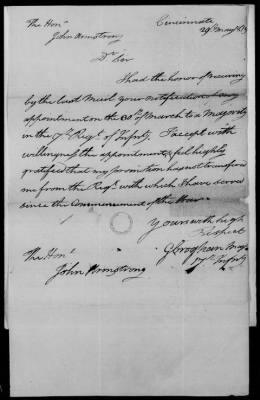 The Honl Cincinnati
John Armstrong 29th May 1814
Dr Sir
I had the honor of receiving
by the last Mail your notification of my
appointment on the 30th of March to a Majority
in the 17th Regt of Infty. I accept with
willingness the appointment & feel highly
gratified that my promotion has not transfered
me from the Regt with which I have served
since the Commencement of the War.
Yours with high
Respect
G Croghan Majr
17th Infty
The Honl
John Armstrong